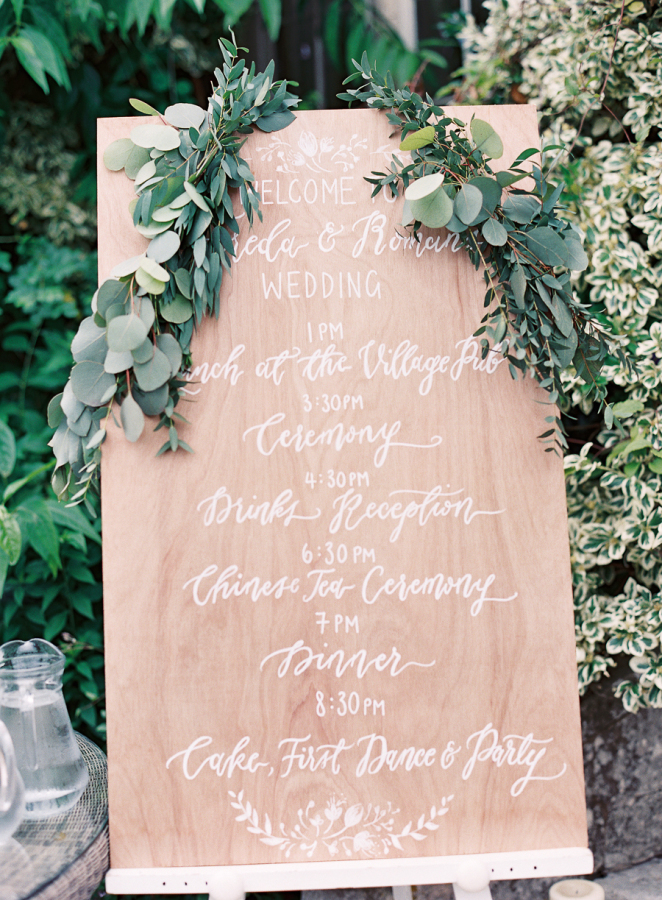 WELCOME TO
& Roman
WEDDING
1PM
at the Village Pub
3:30PM
Ceremony
4:30PM
Drinks Reception
6:30PM
Chinese Tea Ceremony
7PM
Dinner
8:30PM
Cake, First Dance & Party